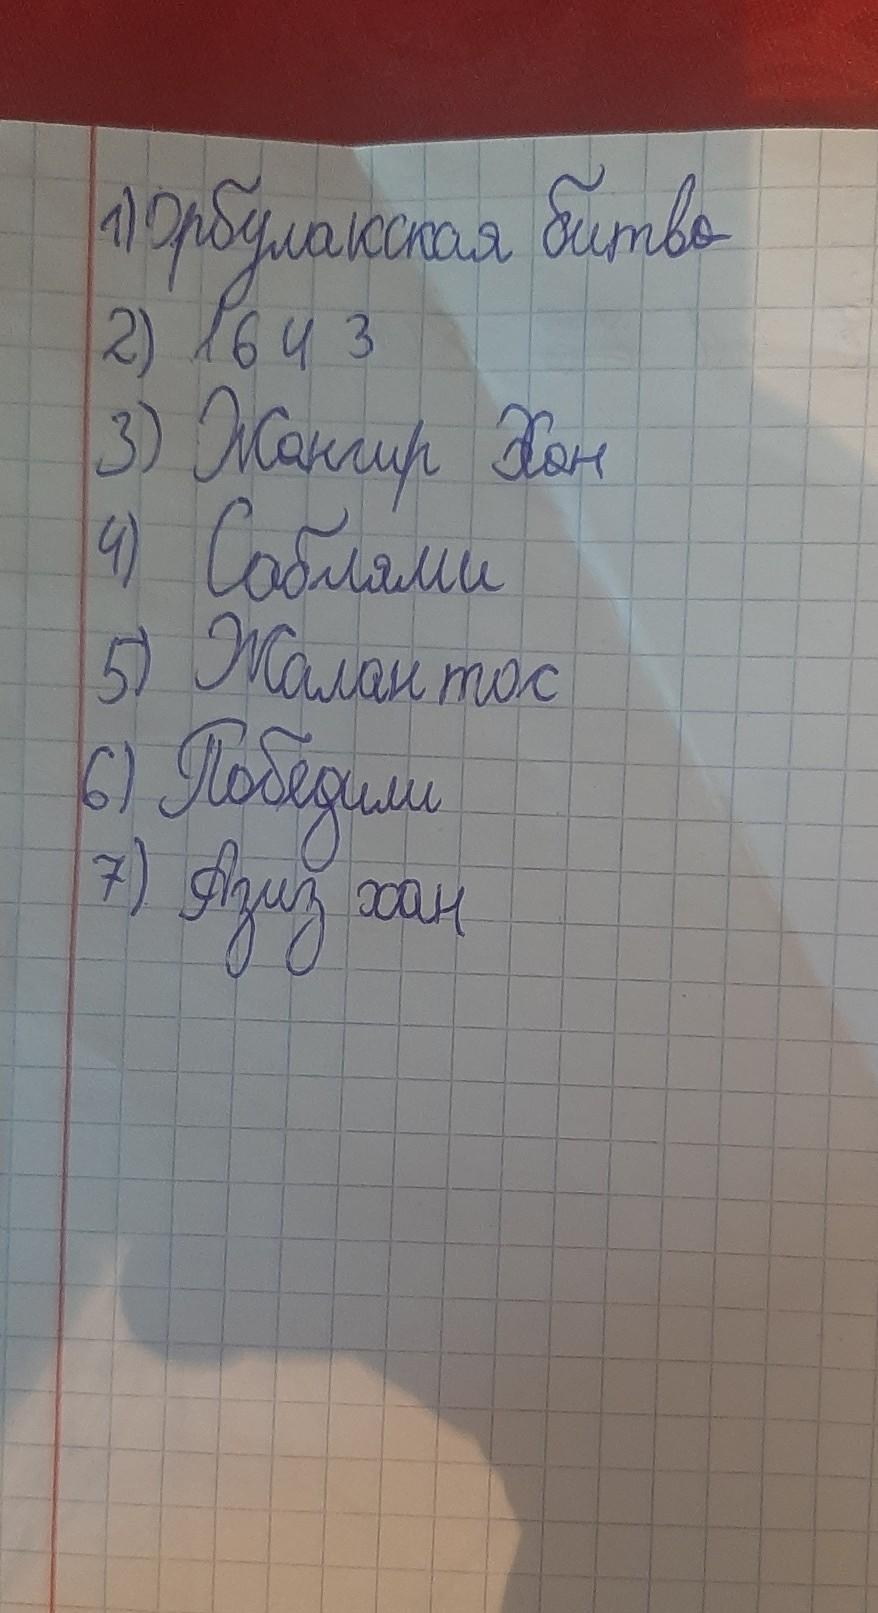 1) Орбулакская битва
2) 1643
3) Жангир Хан
4) Саблями
5) Жалантос
6) Победили
7) Азиз хан